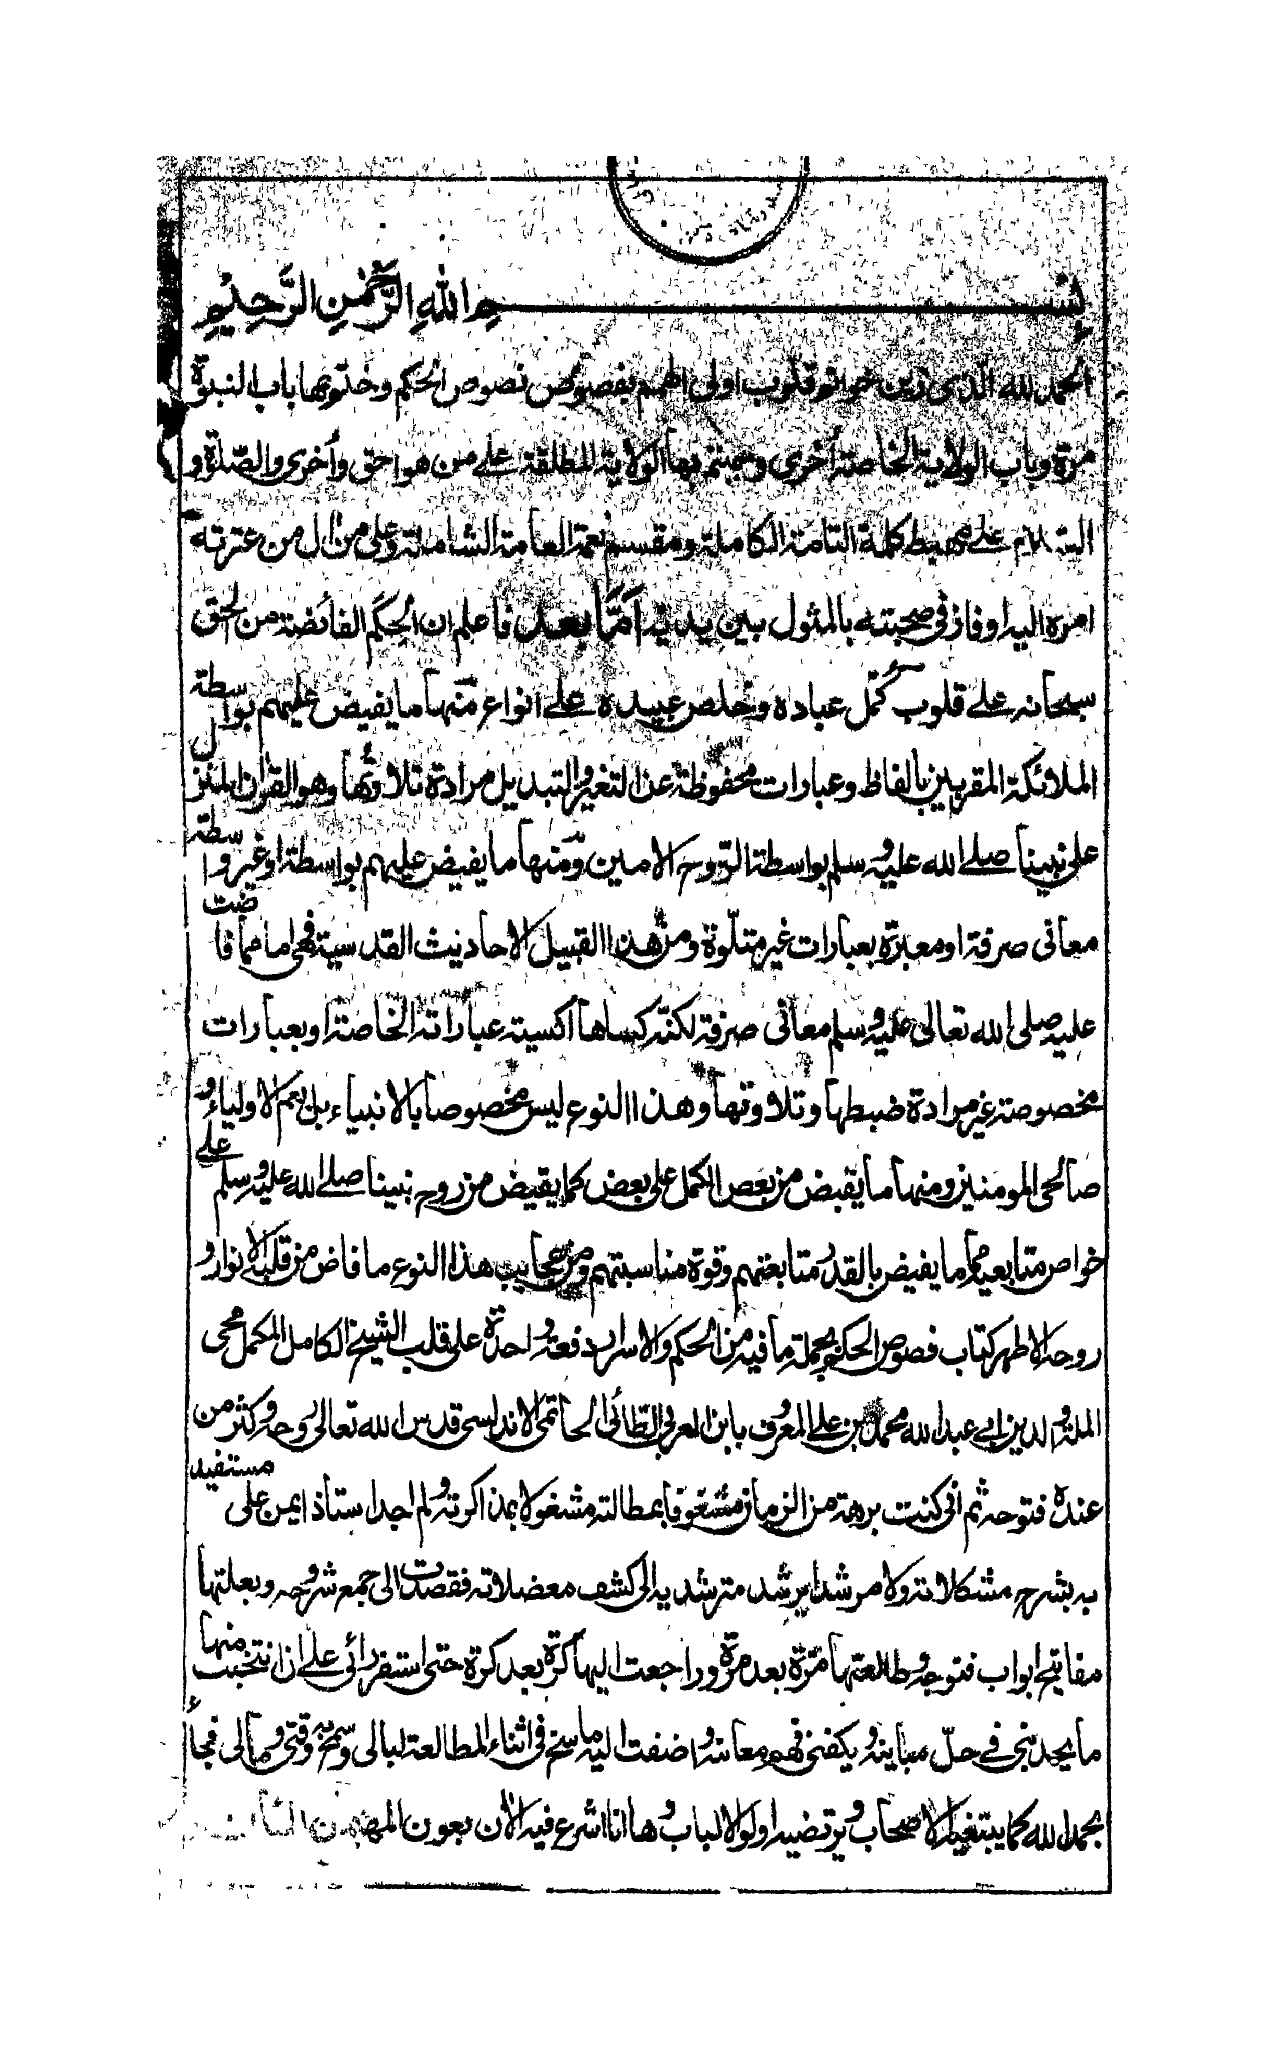 بسم الله الرَّحْمٰنِ الرَّحِيْمِ
الحمد لله الذى زين خواتم قلوب اولى الهمم بفصوص نصوص الحكم وختم بها باب النبوّة
مرّة وباب الولاية الخاصة أخرى ويختم بها الولاية المطلقة على من هو احق وأخرى والصّلوة و
السّلام على مهبط كلمة التامة الكاملة ومقسم نعمة العامة الشاملة وعلى من ال من عترته
امره اليه او فاز فى صحبته بالمثول بين يديه اَمَّا بعد فاعلم ان الحِكَم الفائضة من الحق
سبحانه على قلوب كُمّل عباده وخلص عبيده على انواع منّها ما يفيض عليهم بواسطة
الملائكة المقربين بالفاظ وعبارات محفوظة عن التغير والتبديل مرادة تلاوتها وهو القرآن المنزل
على نبينا صلى الله عليه وسلم بواسطة الرّوح الامين ومنها ما يفيض عليهم بواسطة او غير واسطة
معانى صرفة او معبرّة بعبارات غير متلّوة ومن هذا القبيل الاحاديث القدسية فهى اما مما فاضت
عليه صلى الله تعالى عليه وسلم معانى صرفة لكنّه كساها أكسية عباراته الخاصة او بعبارات
مخصوصة غير مرادة ضبطها وتلاوتها وهذا النوع ليس مخصوصا بالانبياء بل يعم الاولياء و
صالحى المومنين ومنها ما يفيض من بعض الكمل على بعض كما يفيض من روح نبينا صلى الله عليه وسلم على
خواص متابعيه مما يفيض بالقدر متابعتهم وقوة مناسبتهم ومن عجايب هذا النوع ما فاض من قلبه الانوار و
روحه الاطهر كتاب فصوص الحكم بجملة ما فيه من الحكم والاسرار دفعة واحدة على قلب الشيخ الكامل المكمل محى
الملة والدين ابى عبد الله محمد بن على المعروف بابن العربى الطائى الحاتمى الاندلسى قدس الله تعالى روحه وكثر من
عنده فتوحه ثم انى كنت برهة من الزمان مشغوفا بمطالته مشغولا بمذاكرته ولم اجد استاذ ايمن على مستفيد
به بشرح مشكلاته ولا مرشدا يرشد مترشد يه الى كشف معضلاته فقصدت الى جمع شروحه وبعلتها
مفاتيح ابواب فتوحه وطالعتها مرّة بعد مرّة وراجعت اليها كرّة بعد كرة حتى استقر رائى على ان نتخبت منها
ما يجدنى فى حلّ مباينه ويكفنى فهم معانيه واضفت اليه ما سنح فى اثناء المطالعة لبالى وسمح به وقتى ومالى فجاء
بحمد الله كما يبتغيه الاصحاب ويرتضيه اولو الالباب وها انا اشرع فيه الأن بعون المهيمن